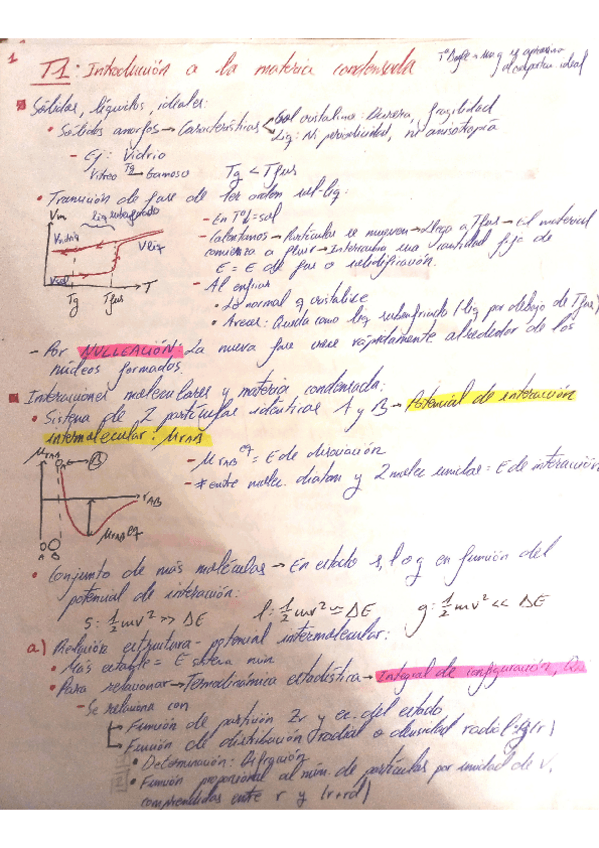 1
T1: Introducción a la materia condensada
Tª Boyle = un g se aproxima al comportam. ideal
Sólidos, líquidos, ideales:
• Sólidos amorfos → Características
Sol cristalino: Dureza, fragilidad
Liq: Ni periodicidad, ni anisotropía
- Ej: Vidrio
Vítreo Tg → Gomoso Tg < Tfus
• Transición de fase de 1er orden sol-liq:
Vm
liq subenfriado
Vvidrio
Vliq
Vsol
Tg Tfus T
- En Tª1 = sol
- Calentamos → Partículas se mueven → Llega a Tfus → El material
comienza a fluir → Intercambia una cantidad fija de
E = E de fus o solidificación.
- Al enfriar
• Lo normal q cristalice
• A veces: Queda como liq subenfriado (liq por debajo de Tfus)
- Por NUCLEACIÓN: La nueva fase crece rápidamente alrededor de los
núcleos formados.
Interacciones moleculares y materia condensada:
• Sistema de 2 partículas idénticas A y B → Potencial de interacción
intermolecular: μrAB
μrAB
A → B
rAB
μrAB eq
A B
- μrAB eq = E de disociación
- * entre molec. diatom y 2 molec unidas = E de interacción
• Conjunto de más moléculas → En estado s, l o g en función del
potencial de interacción:
s: ½ mv² >> ΔE l: ½ mv² ≃ ΔE g: ½ mv² << ΔE
a) Relación estructura - potencial intermolecular:
• Más estable = E sistema mín
• Para relacionar → Termodinámica estadística → Integral de configuración,
- Se relaciona con
Función de partición Zr y ec. del estado
Función de distribución radial o densidad radial: g(r)
• Determinación: Difracción
• Función proporcional al núm. de partículas por unidad de V,
comprendidas entre r y (r+rd)